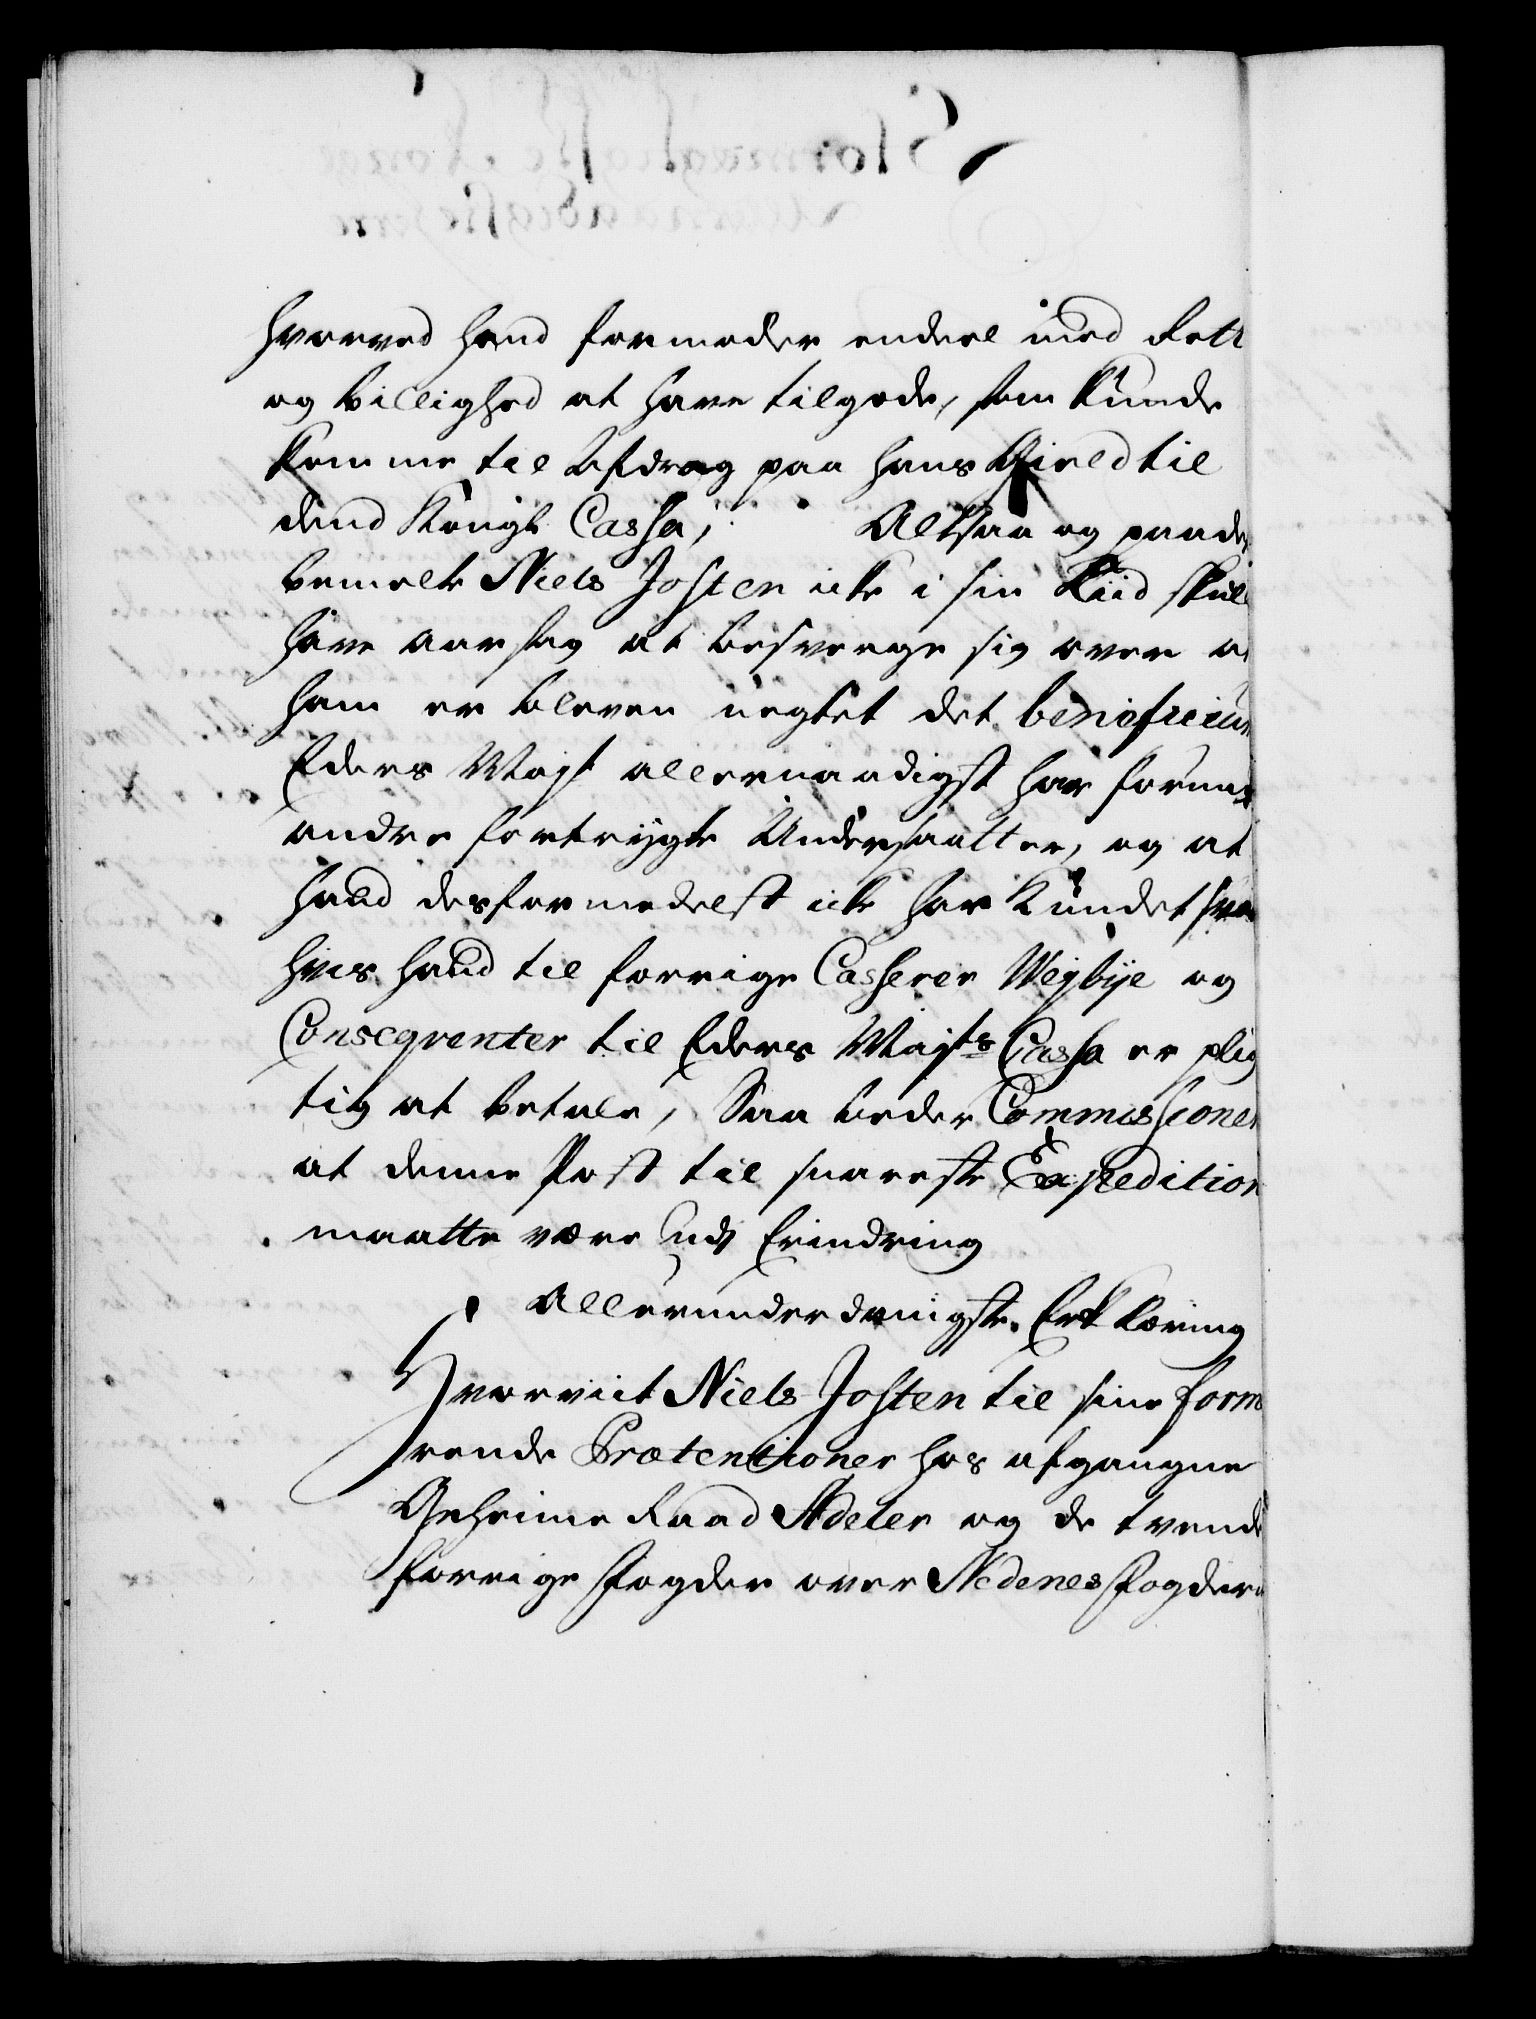 hvorved hand formoder endeel med Rett
og billighed at have tilgode, som kunde
komme til Afdrag paa hans Gield til
dend Kongl Cassa; Altsaa og paa de
bemelte Niels Josten icke i sin tiid skull
have aarsag at besverge sig over at
ham er bleven negtet det beneficium
Eders Mayt allernaadigst har forundt
andre fortrygte Undersaatter, og at
hand desformedelst icke har kundet svare
hvis hand til forrige Casserer Weybye og
Conseqventer til Eders Mayts Cassa er plig
tig at betale, Saa beder Commissionen
at denne Post til snareste Expedition
maatte være udj Erindring
Allerunderdanigste Erklæring
Hvorvit Niels Josten til sine forme
rende Prætentioner hos afgangne
Geheime Raad Adeler og de tvende
forrige Fogder over Nedenes Fogderi